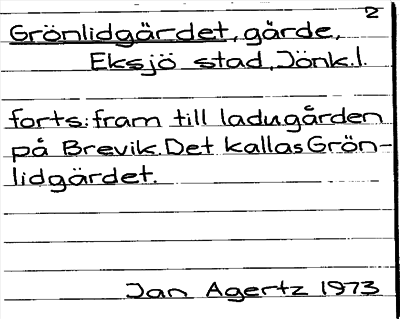 2
Grönlidgärdet, gärde,
Eksjö stad, Jönk.l.
forts: fram till ladugården
på Brevik. Det kallas Grön-
lidgärdet.
Jan Agertz 1973